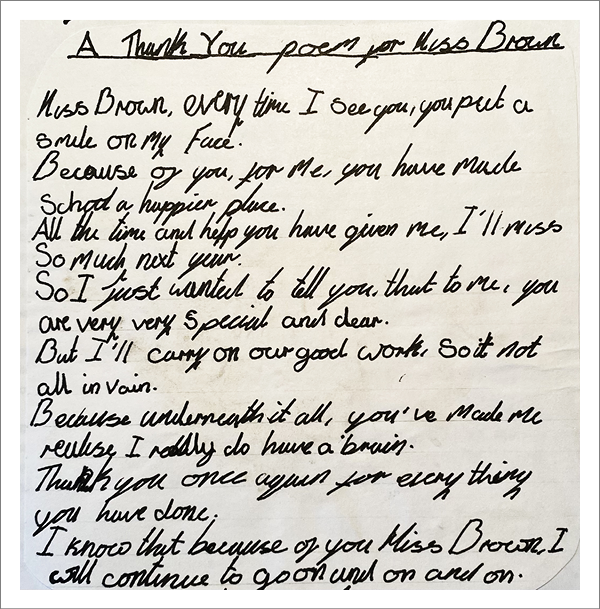 A Thank You poem for Miss Brown
Miss Brown, every time I see you, you put a
smile on my Face.
Because of you, for me, you have made
School a happier place.
All the time and help you have given me, I'll miss
So much next year.
So I just wanted to tell you, that to me, you
are very very special and dear.
But I'll carry on our good work, So it not
all in vain.
Because underneath it all, you've made me
realise I really do have a brain.
Thank you once again for every thing
you have done.
I know that because of you Miss Brown, I
will continue to go on and on and on.